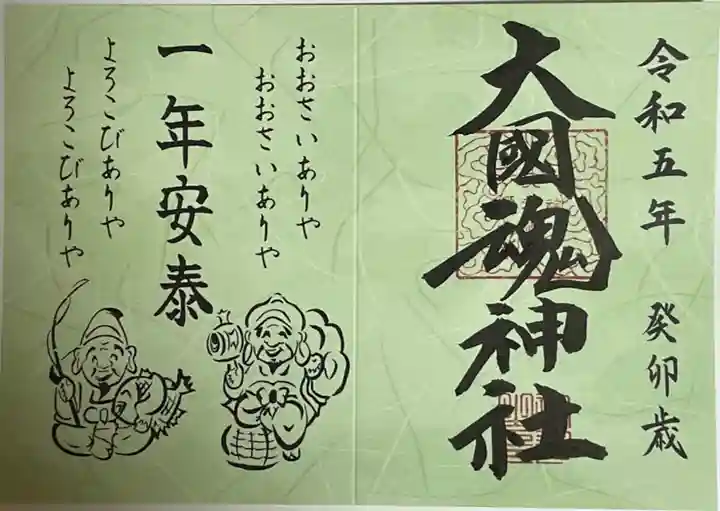 令和五年 癸卯歳
大國魂神社
おおさいありや
おおさいありや
一年安泰
よろこびありや
よろこびありや